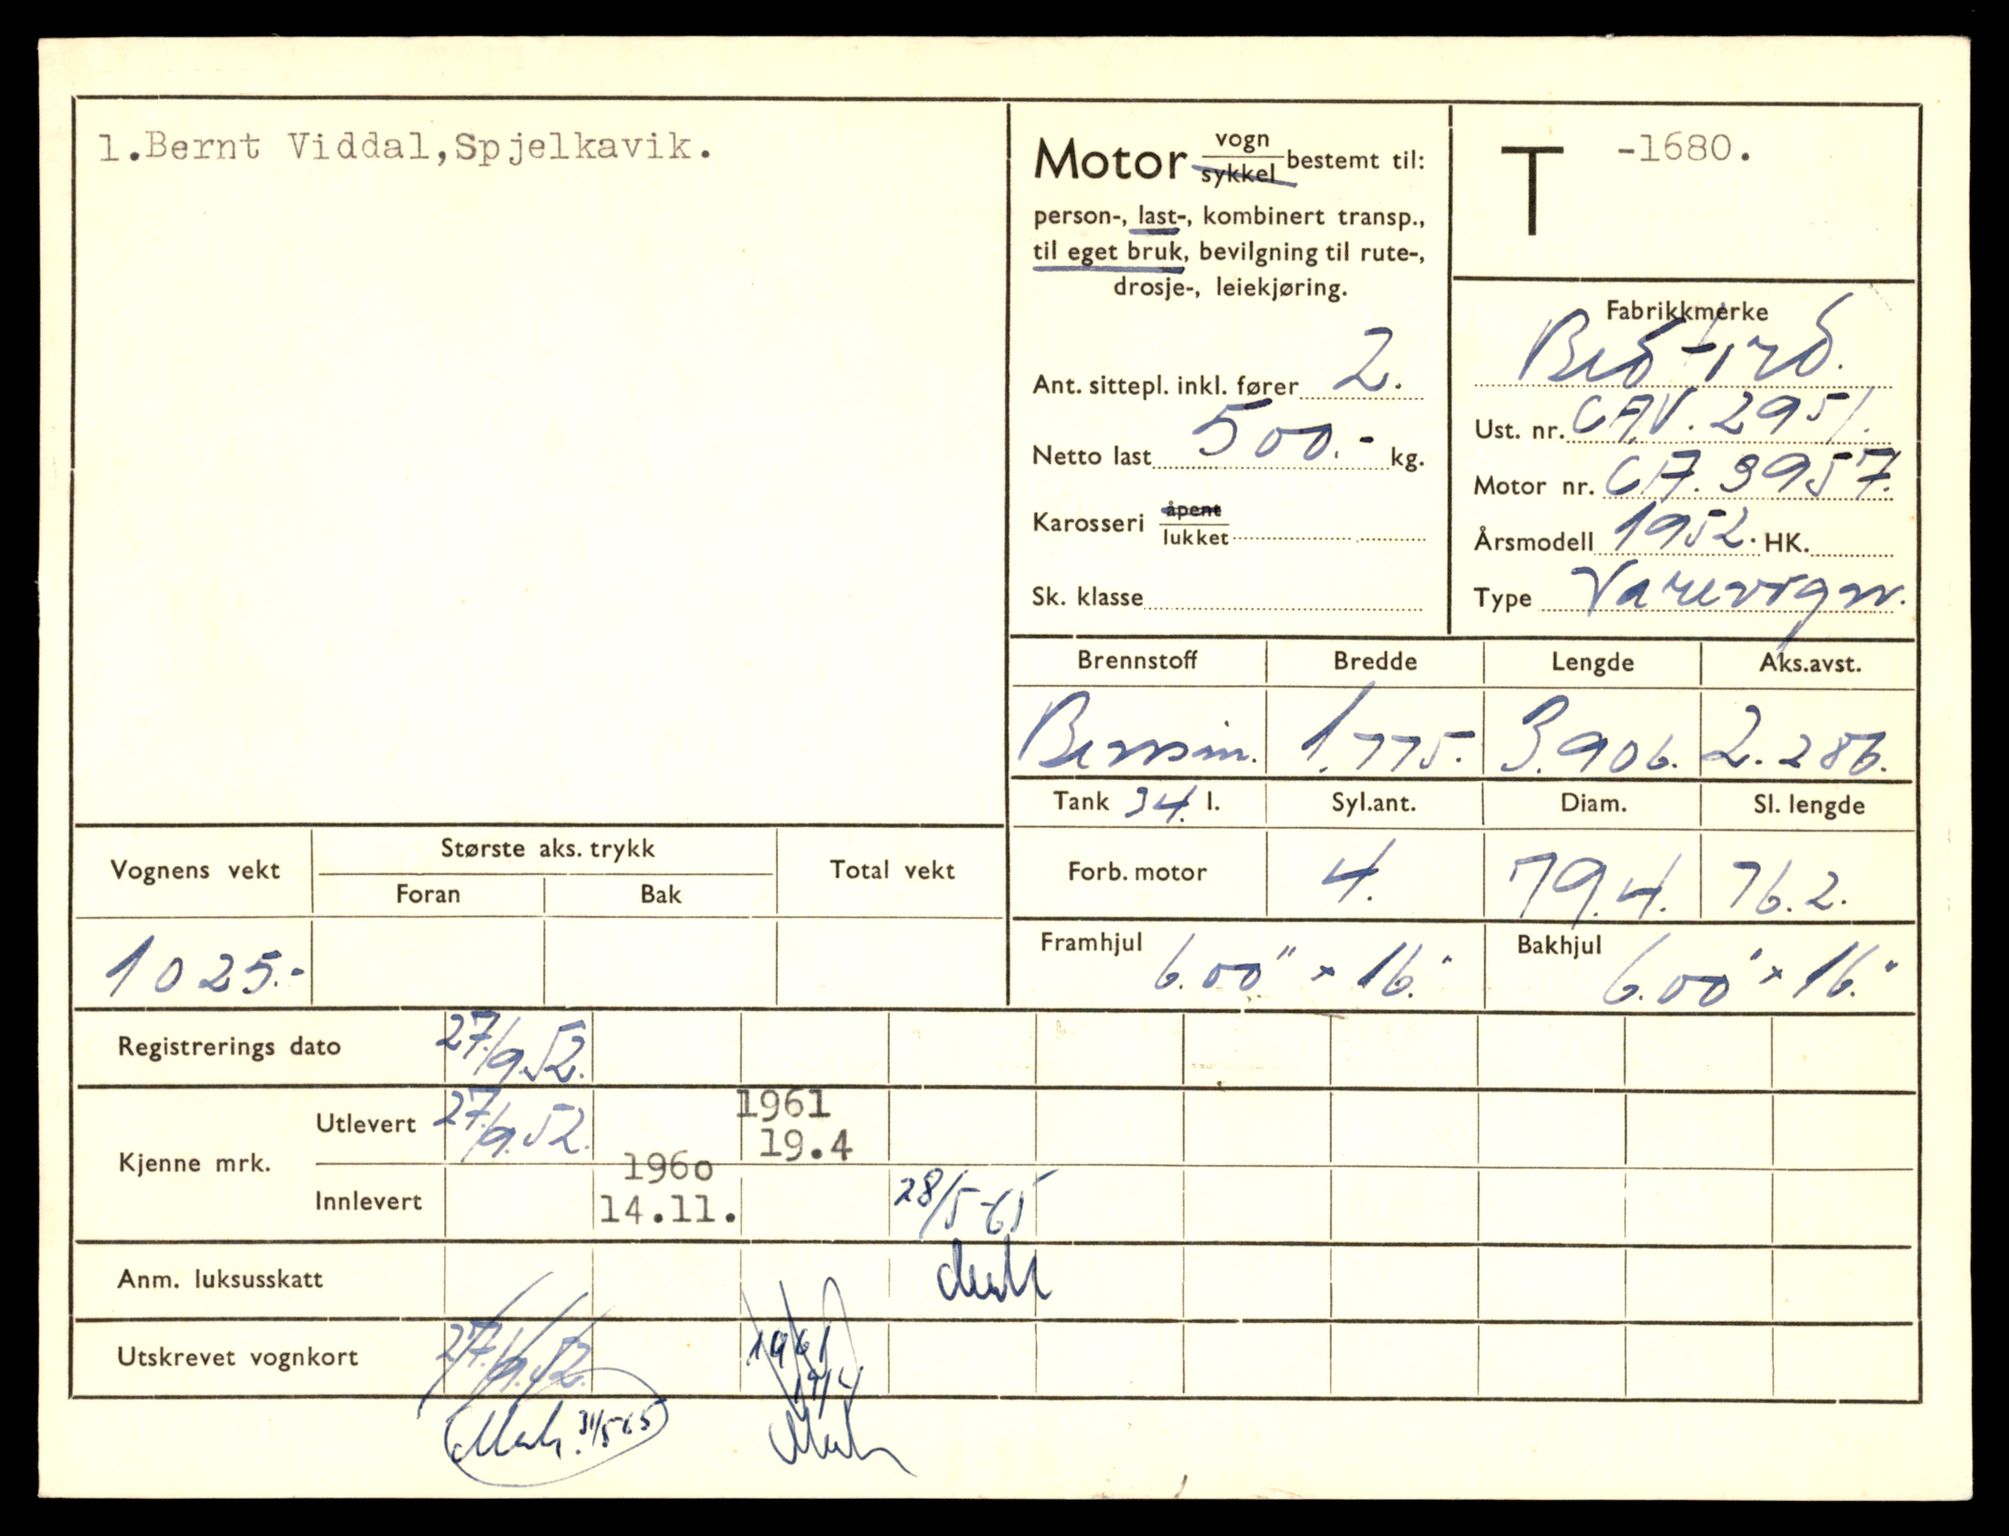 1.Bernt Viddal,Spjelkavik.
Motor vogn sykkel bestemt til:
person-, last-, kombinert transp.,
til eget bruk, bevilgning til rute-,
drosje-, leiekjøring.
Ant. sittepl. inkl. fører 2.
Netto last 500.- kg.
Karosseri åpent lukket
Sk. klasse
T -1680.
Fabrikkmerke
Bedford.
Ust. nr. CAV. 2951.
Motor nr. CA. 3957.
Årsmodell 1952. HK.
Type Varevogn.
Brennstoff Bredde Lengde Aks.avst.
Bensin. 1.775. 3.906. 2.286.
Tank 34. l. Syl.ant. Diam. Sl. lengde
Forb. motor 4. 79.4. 76.2.
Framhjul 6.00" x 16." Bakhjul 6.00" x 16."
Vognens vekt Største aks. trykk Total vekt
Foran Bak
1025.-
Registrerings dato 27/9.52.
Kjenne mrk. Utlevert 27/9.52. 1961 19.4
Innlevert 1960 14.11. 28/5-65
Anm. luksusskatt
Utskrevet vognkort 27/9.52. 1961
19/4
31/5-65